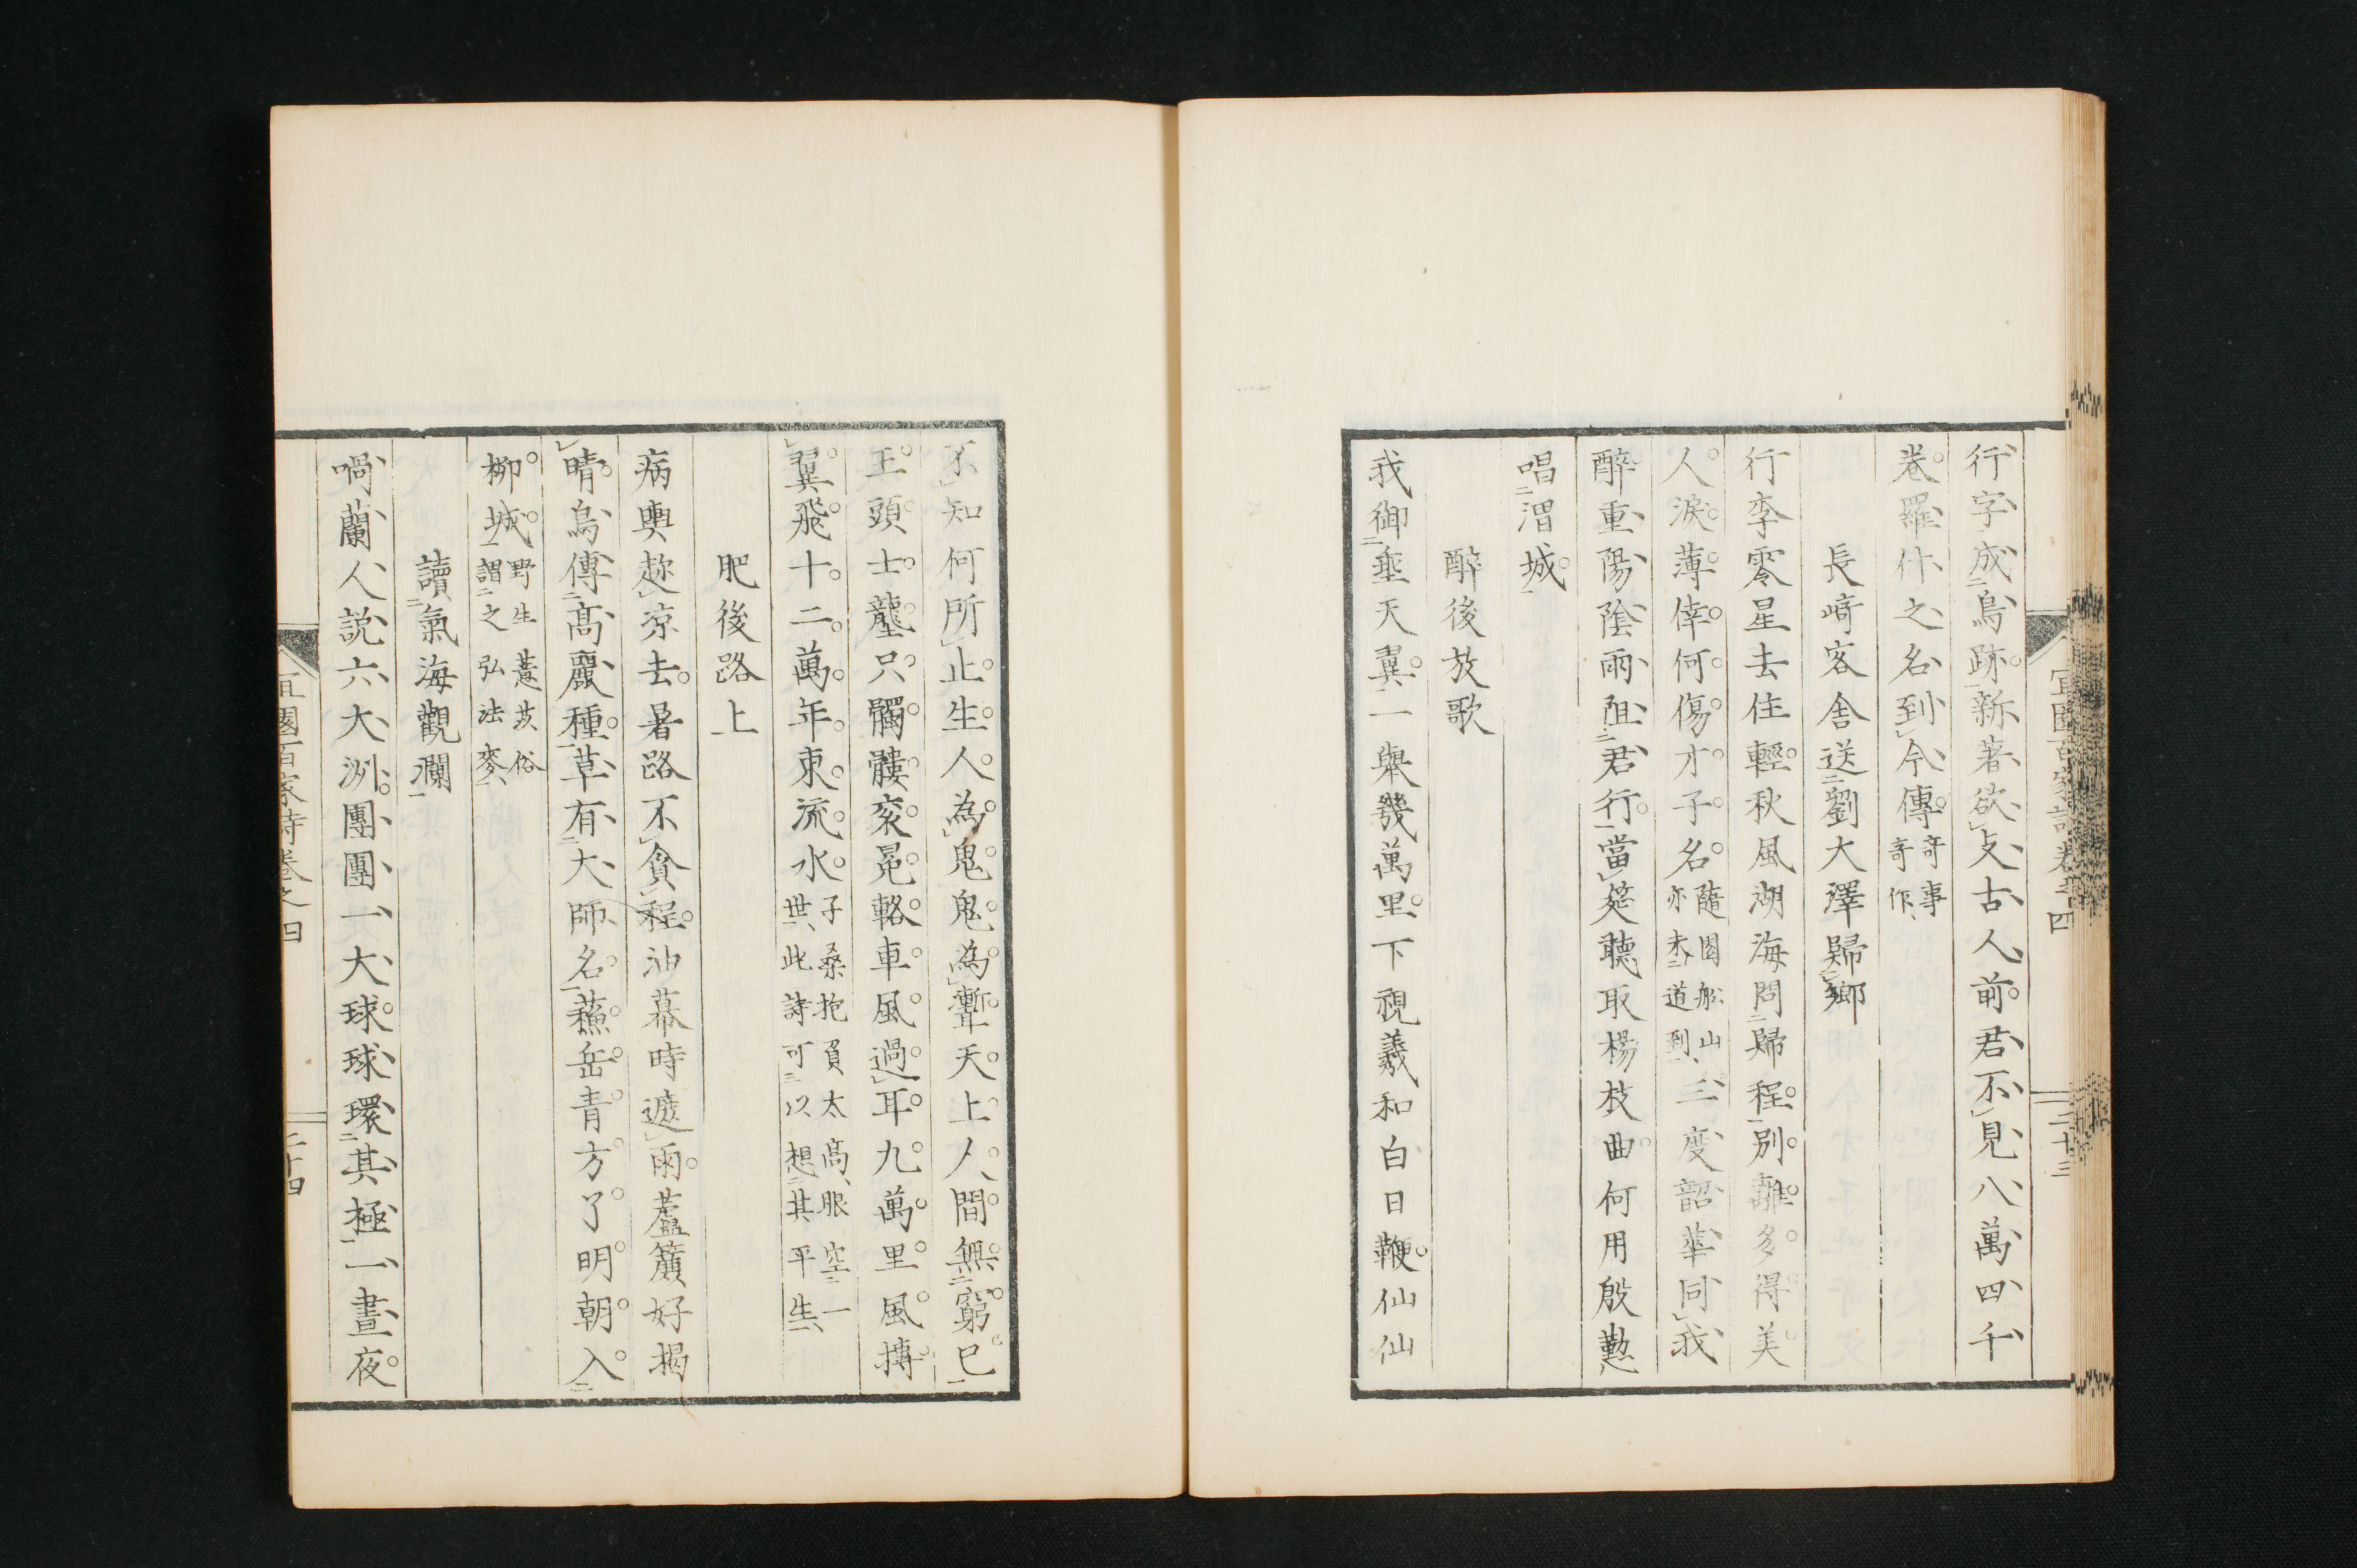 宜園百家詩卷之四
二十三
行字成鳥跡新著欲攴古人前君不見八萬四千
卷羅什之名到今傳奇事奇作
長﨑客舎送劉大澤歸郷
行李零星去住輕秋風湖海問歸程別離多得美
人淚薄倖何傷才子名隨園船山亦未道到三度韶華同我
醉重陽陰雨阻君行當筵聽取楊枝曲何用殷勤
唱渭城
醉後放歌
我御垂天翼一舉幾萬里下視羲和白日鞭仙仙
不知何所止生人為鬼鬼為聻天上人間無窮已
王頭士壟只髑髏衮冕輅車風過耳九萬里風摶
翼飛十二萬年東流水子桑抱負太高眼空一世此詩可以想其平生
肥後路上
病輿趂涼去暑路不貪程油幕時遮雨蘆簾好揭
晴鳥傳高麗種草有大師名蘓岳青方了明朝入
柳城野生薏苡俗謂之弘法麥
讀氣海觀瀾
喎蘭人說六大洲團團一大球球環其極一晝夜
宜園百家詩卷之四
二十四